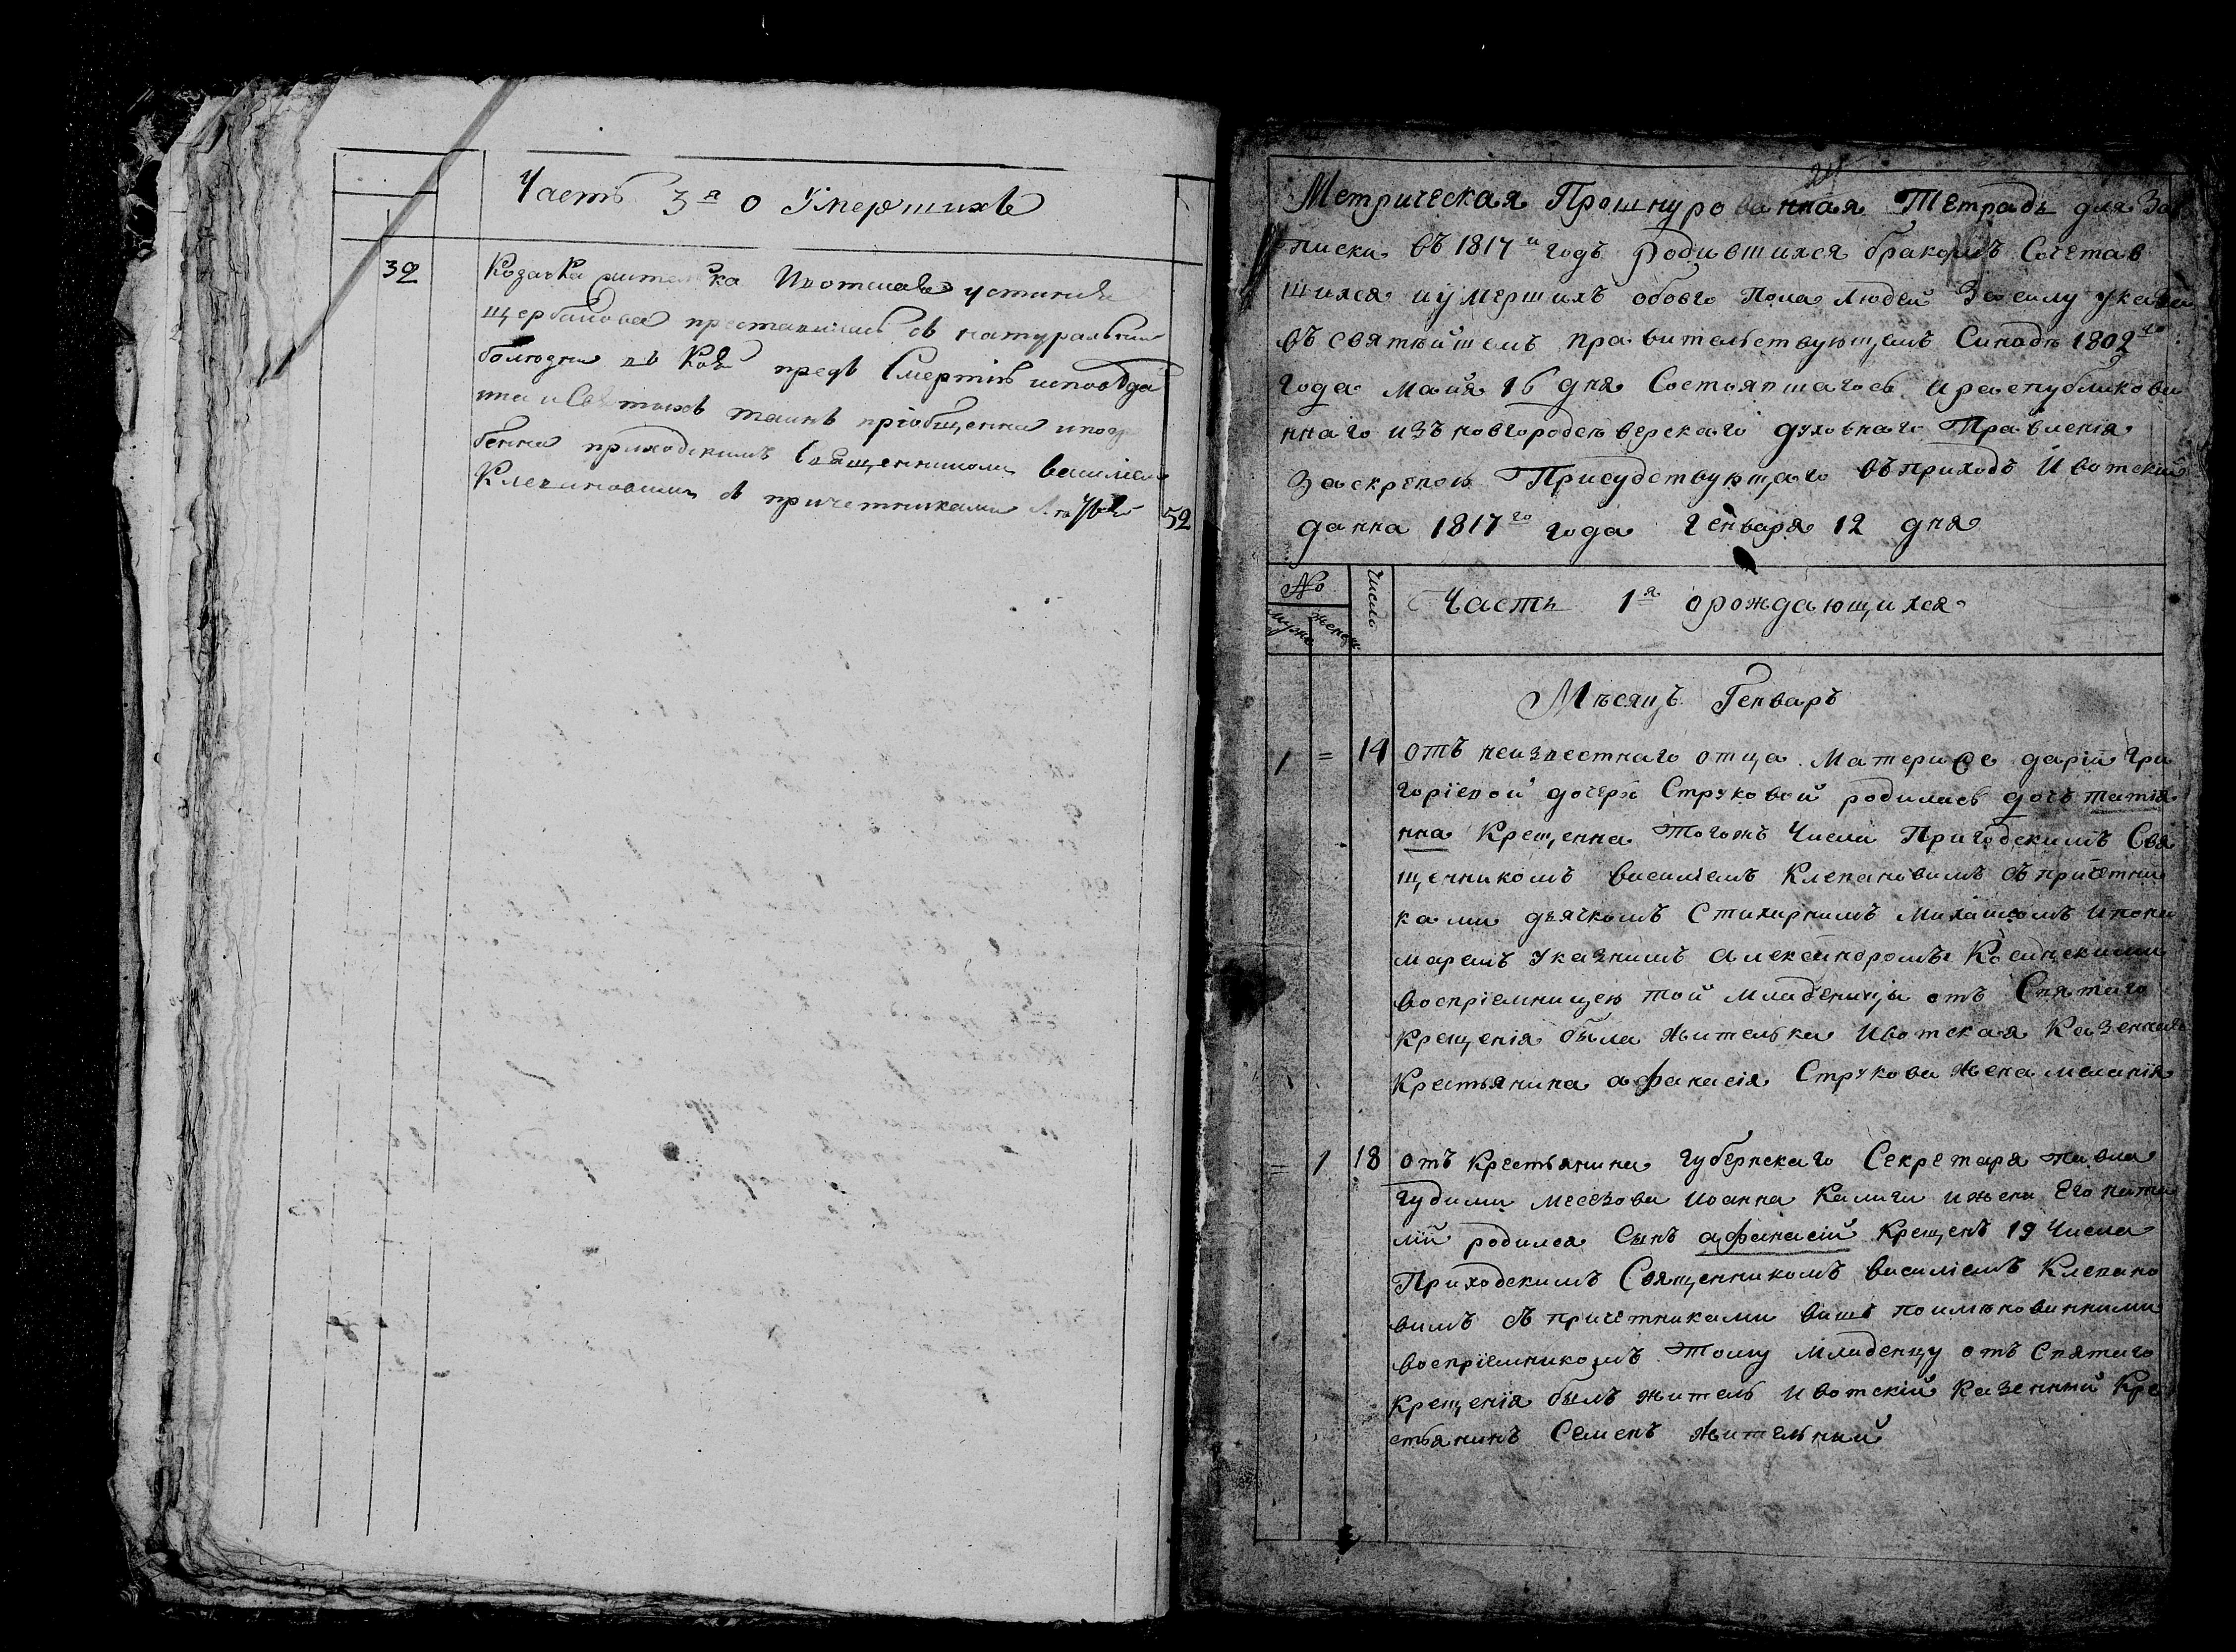 Часть 3я о Умершихъ
32
Козачка жителька Ивотская устиния
щербакова преставилась отъ натуральной
болѣзни предъ Смертію исповѣда
нна и Святыхъ таинъ пріобщенна и погре
бенна приходскимъ Священникомъ василіемъ
Клепановимъ съ причетниками
52
24
Метрическая Прошнурованная Тетрадь для За
писки въ 1817й годъ родившихся бракомъ Сочетав
шихся и умершихъ обоего Пола людей въ силу указа
въ святѣйшемъ правительствующемъ Синодѣ 1802го
года Майя 16 дня Состоявшагось и распубликова
ннаго изъ новгородсѣверскаго духовнаго Правленія
За скрепою Присудствующаго въ приходъ Ивотскій
данна 1817го года Генваря 12 дня
№ Число Часть 1я о рождающихся
мужс женск
Мѣсяцъ Генварь
1 = 14 отъ неизвестнаго отца Матери же даріи Гри
горіевой дочери Струковой родилась дочь татія
нна Крещенна Тогожъ Числа Приходскимъ Свя
щенникомъ василіемъ Клепановимъ съ причетни
ками дьячкомъ Стихарнимъ Михаиломъ и поно
маремъ Указнимъ александромъ Косинскими
воспріемницею той младеници отъ Святаго
Крещенія была жителька Ивотская Казеннаго
Крестьянина афанасія Струкова жена меланія
= 1 18 отъ Крестьянина губернскаго Секретаря павла
Іоанна Калиги и жени Его ната
лій родился Сынъ афанасій Крещенъ 19 Числа
Приходскимъ Священникомъ василіемъ Клепано
вимъ съ причетниками више поимѣнованними
воспріемникомъ Тому Младенцу отъ Святаго
Крещенія былъ житель Ивотскій Казенный Кре
стьянинъ Семенъ жительный